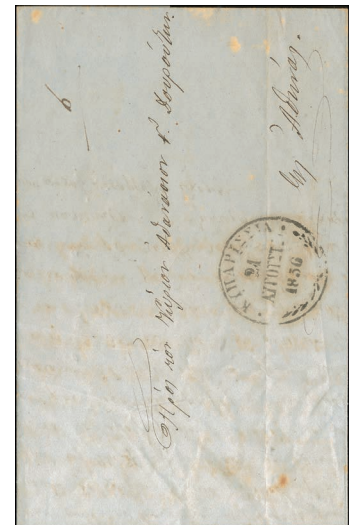 Πρὸς τὸν Κύριον Ἀθανάσιον Γ. Δουρούτην.
εἰς Ἀθήνας.
ΚΥΠΑΡΙΣΣΙΑ
21
ΑΥΓΟΥΣΤ.
1856
6